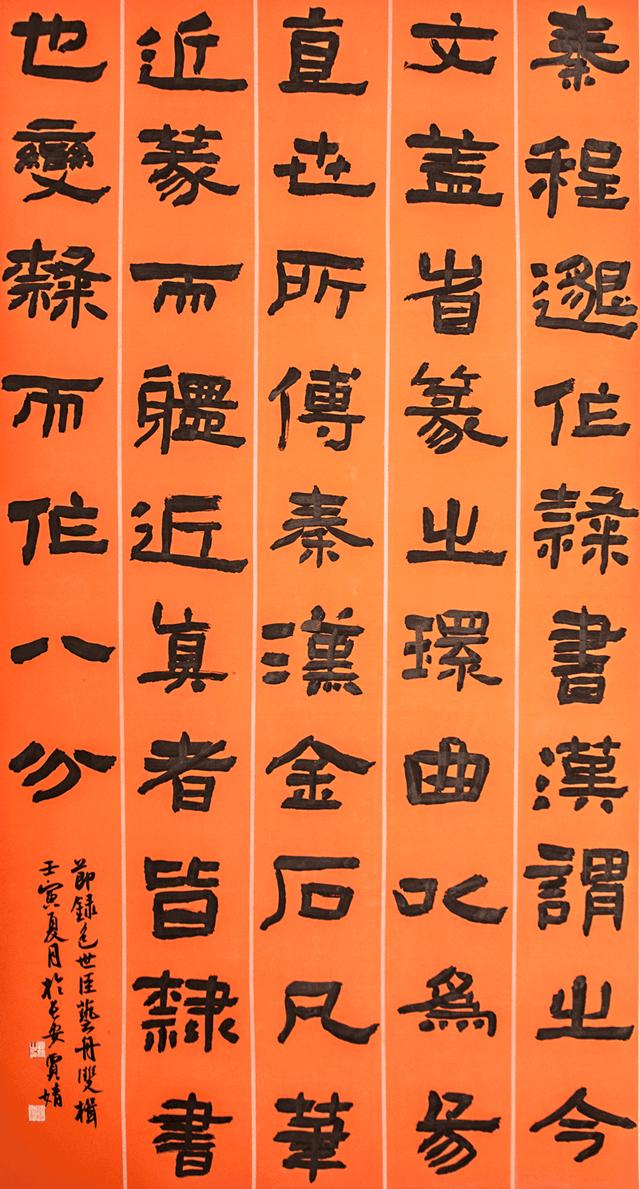 秦程邈作隸書漢謂之今
文蓋省篆之環曲以為易
直世所傳秦漢金石凡筆
近篆而體近真者皆隸書
也變隸而作八分
節錄包世臣藝舟雙楫
壬寅夏月於長安賈婧